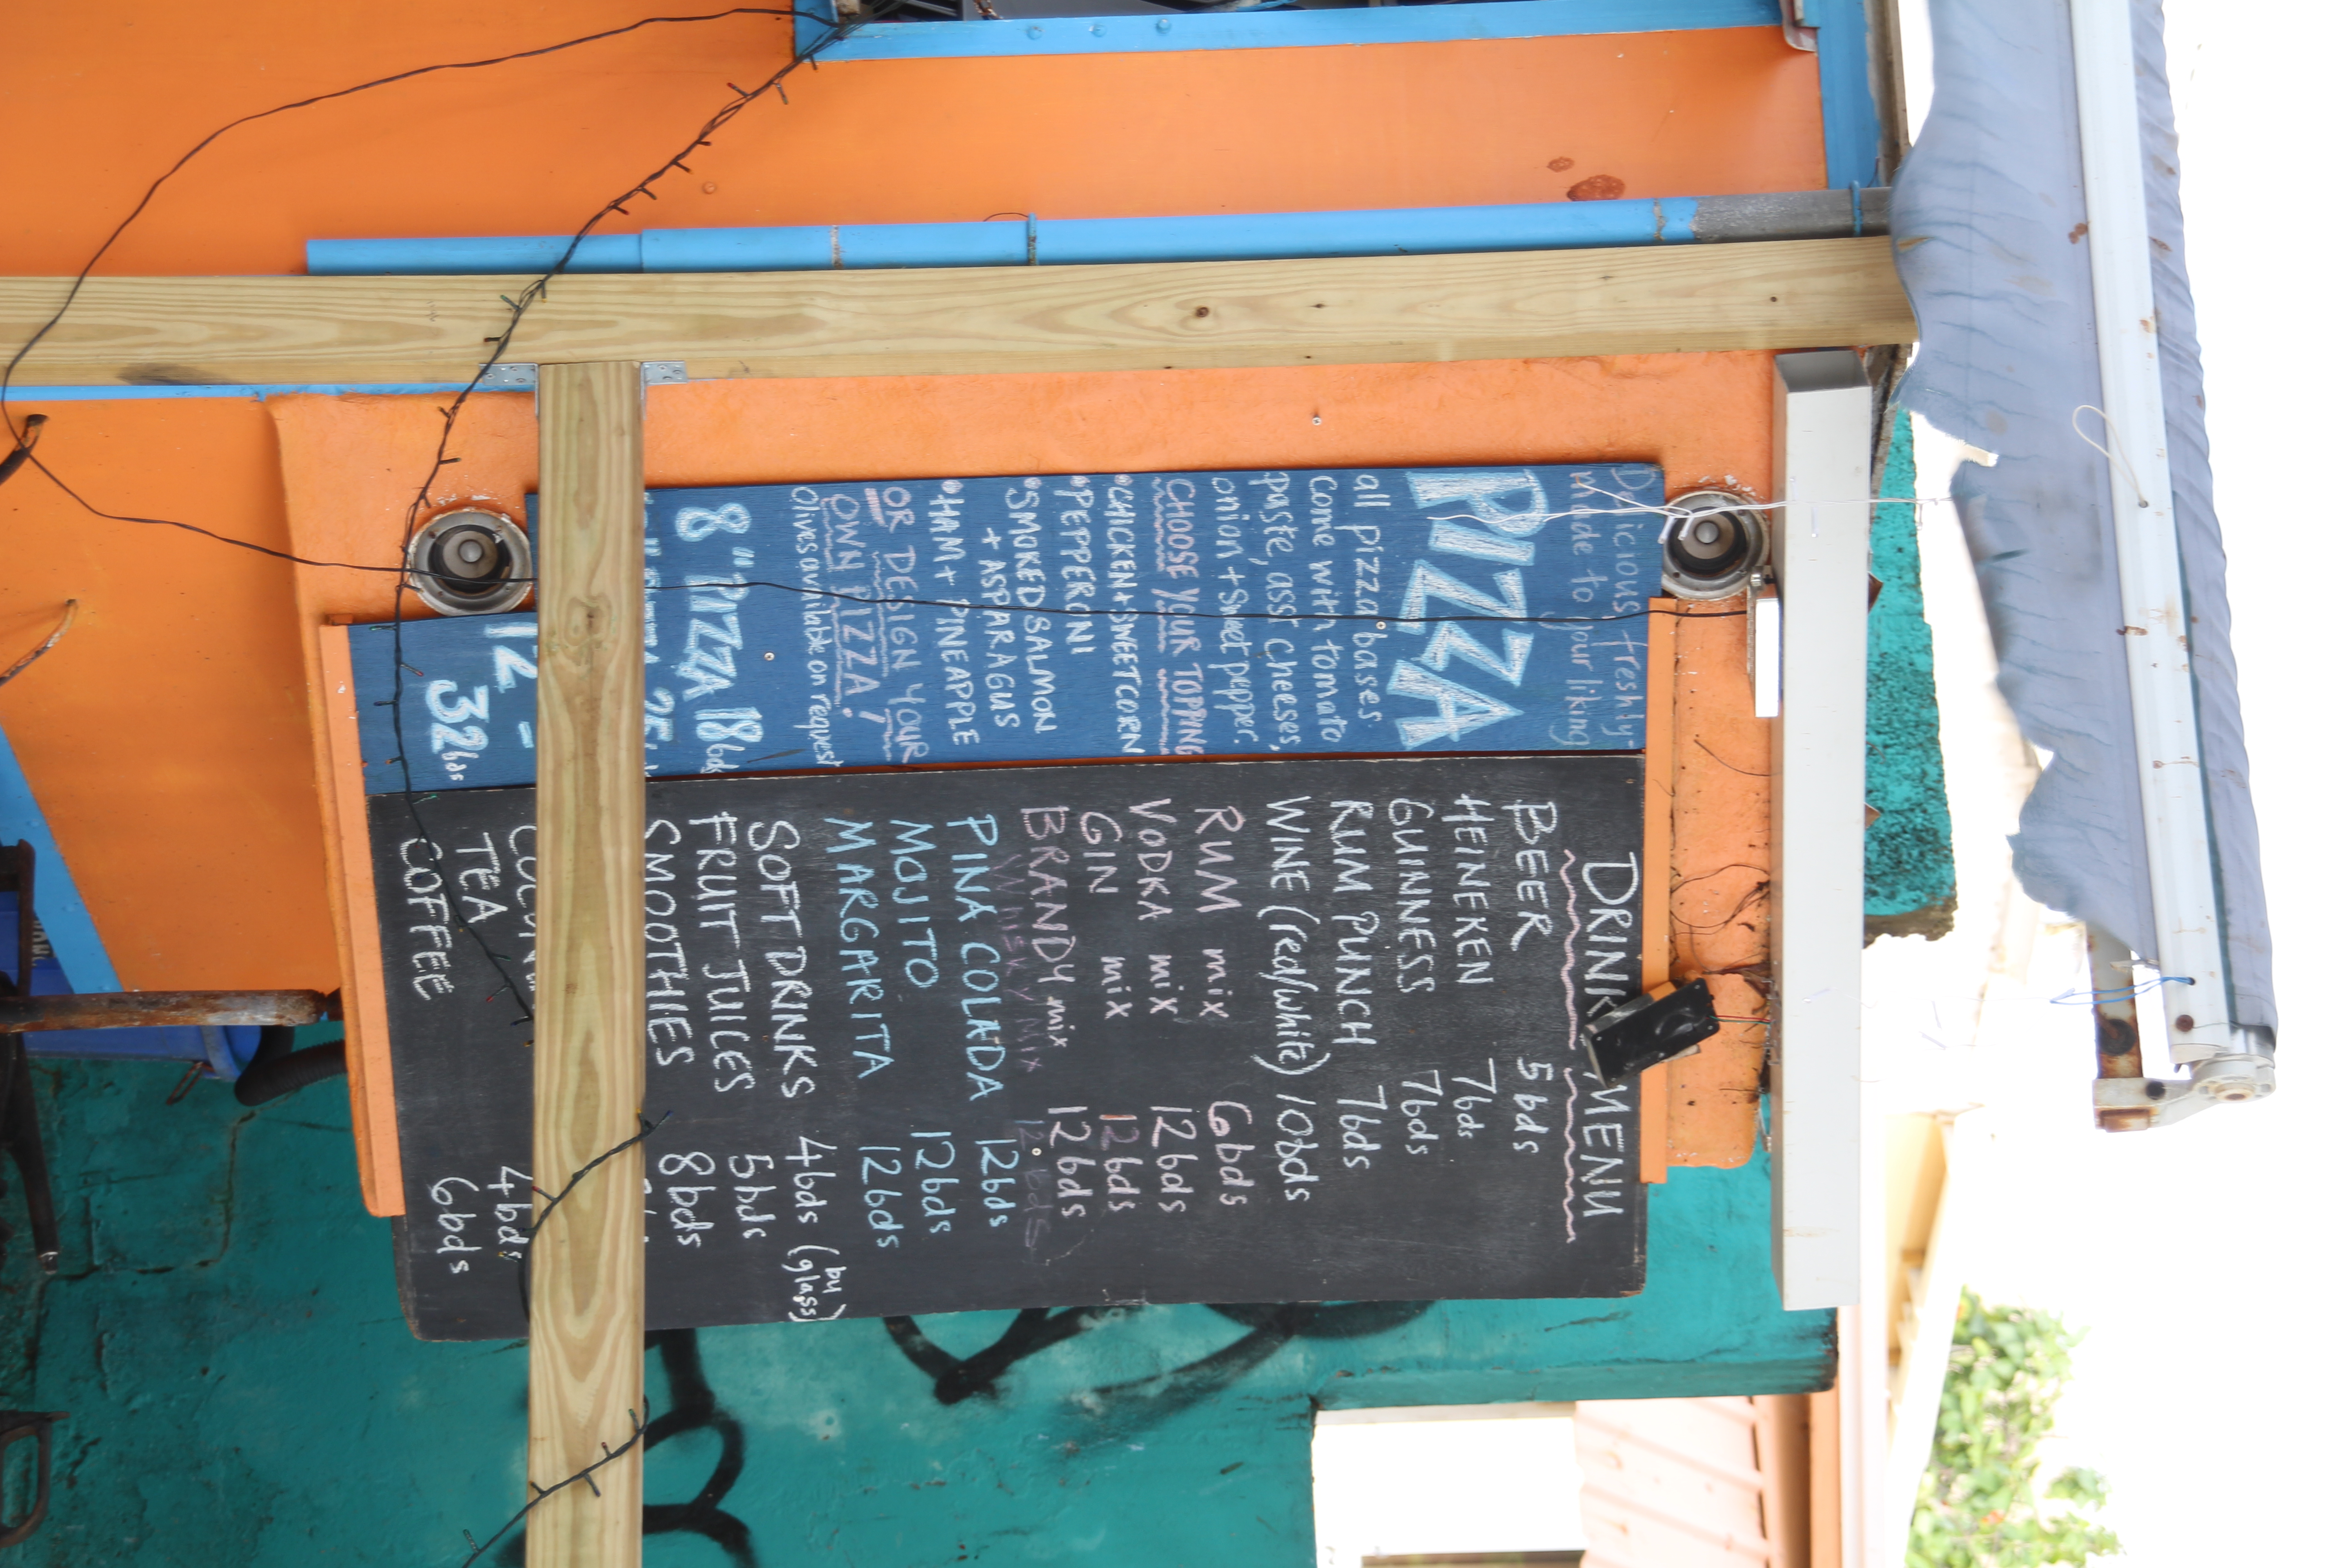 Delicious freshly-
made to your liking
PIZZA
all pizza bases
come with tomato
paste, asst cheeses,
onion + Sweet pepper.
CHOOSE YOUR TOPPING
•CHICKEN+SWEETCORN
•PEPPERONI
•SMOKED SALMON
+ ASPARAGUS
•HAM + PINEAPPLE
OR DESIGN YOUR
OWN PIZZA!
Olives available on request
8" PIZZA 18bds
12 -
32bds
DRINK MENU
BEER 5bds
HEINEKEN 7bds
GUINNESS 7bds
RUM PUNCH 7bds
WINE (red/white) 10bds
RUM mix 6bds
VODKA mix 12bds
GIN mix 12bds
BRANDY mix 12bds
Whisky Mix 12bds
PINA COLADA 12bds
MOJITO 12bds
MARGARITA 12bds
SOFT DRINKS 4bds (by glass)
FRUIT JUICES 5bds
SMOOTHIES 8bds
TEA 4bds
COFFEE 6bds